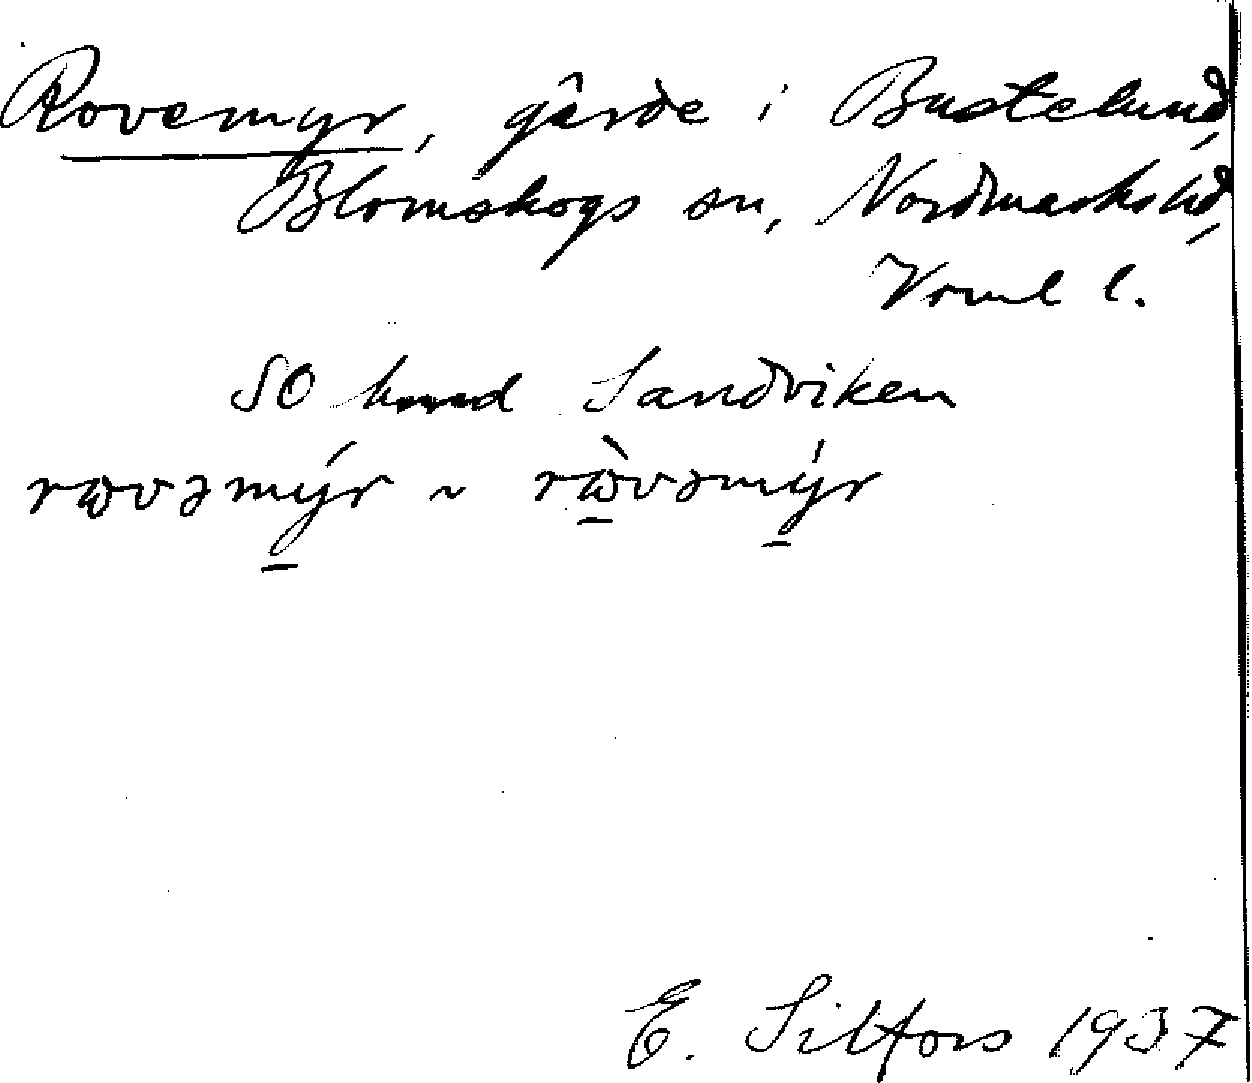 Rovemyr, gärde i Bustelund,
Blomskogs sn, Nordmarks hd,
Vrml l.
SO  Sandviken
rɷvəmýr ~ rɷ̀vəmýr
E. Silfors 1937